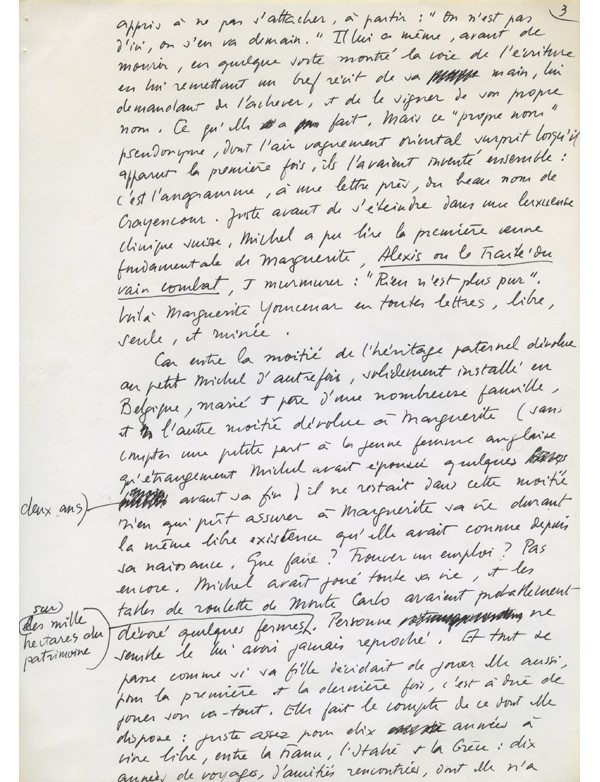 3
appris à ne pas s'attacher, à partir : "On n'est pas
d'ici, on s'en va demain." Il lui a même, avant de
mourir, en quelque sorte montré la voie de l'écriture
en lui remettant un bref récit de sa main, lui
demandant de l'achever, et de le signer de son propre
nom. Ce qu'elle a fait. Mais ce "propre nom"
pseudonyme, dont l'air vaguement oriental surprit lorsqu'il
apparut la première fois, ils l'avaient inventé ensemble :
c'est l'anagramme, à une lettre près, du beau nom de
Crayencour. Juste avant de s'éteindre dans une luxueuse
clinique suisse, Michel a pu lire la première œuvre
fondamentale de Marguerite, Alexis ou le Traité du
vain combat, et murmurer : "Rien n'est plus pur".
Voilà Marguerite Yourcenar en toutes lettres, libre,
seule, et ruinée.
Car entre la moitié de l'héritage paternel dévolue
au petit Michel d'autrefois, solidement installé en
Belgique, marié et père d'une nombreuse famille,
et l'autre moitié dévolue à Marguerite (sans
compter une petite part à la jeune femme anglaise
qu'étrangement Michel avait épousée quelques
deux ans) avant sa fin) il ne restait dans cette moitié
rien qui pût assurer à Marguerite sa vie durant
la même libre existence qu'elle avait connue depuis
sa naissance. Que faire ? Trouver un emploi ? Pas
encore. Michel avait joué toute sa vie, et les
tables de roulette de Monte Carlo avaient probablement
sur
les mille
hectares du
patrimoine
dévoré quelques fermes. Personne ne
semble le lui avoir jamais reproché. Et tout se
passe comme si sa fille décidait de jouer elle aussi,
pour la première et la dernière fois, c'est à dire de
jouer son va-tout. Elle fait le compte de ce dont elle
dispose : juste assez pour dix années à
vivre libre, entre la France, l'Italie et la Grèce : dix
années de voyages, d'amitiés rencontrées, dont elle n'a